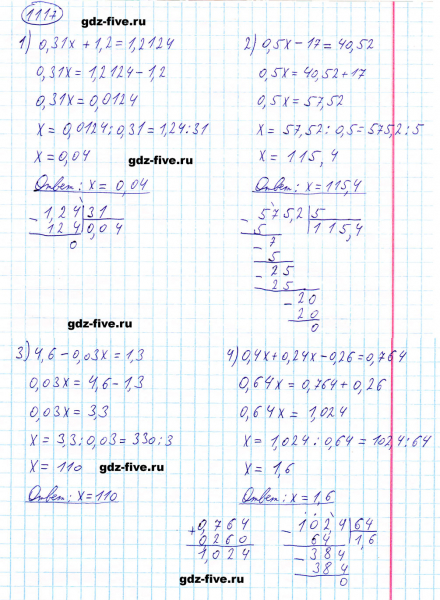 1117
gdz-five.ru
1) 0,31x + 1,2 = 1,2124
0,31x = 1,2124 - 1,2
0,31x = 0,0124
x = 0,0124 : 0,31 = 1,24 : 31
x = 0,04
gdz-five.ru
Ответ: x = 0,04
- 1,24 | 31
124 | 0,04
0
2) 0,5x - 17 = 40,52
0,5x = 40,52 + 17
0,5x = 57,52
x = 57,52 : 0,5 = 575,2 : 5
x = 115,4
Ответ: x = 115,4
- 575,2 | 5
5 | 115,4
- 7
5
- 25
25
- 20
20
0
gdz-five.ru
3) 4,6 - 0,03x = 1,3
0,03x = 4,6 - 1,3
0,03x = 3,3
x = 3,3 : 0,03 = 330 : 3
x = 110
gdz-five.ru
Ответ: x = 110
4) 0,4x + 0,24x - 0,26 = 0,764
0,64x = 0,764 + 0,26
0,64x = 1,024
x = 1,024 : 0,64 = 102,4 : 64
x = 1,6
Ответ: x = 1,6
+ 0,764
0,260
1,024
- 102,4 | 64
64 | 1,6
- 384
384
0
gdz-five.ru